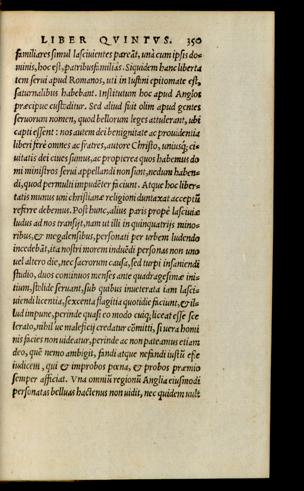 LIBER QVINTVS. 350
familiares simul lasciuientes pareāt, unà cum ipsis do-
minis, hoc est, patribusfamiliâs. Siquidem hanc liberta
tem serui apud Romanos, uti in Iustini epitomate est,
saturnalibus habebant. Institutum hoc apud Anglos
præcipue custoditur. Sed aliud fuit olim apud gentes
seruorum nomen, quod bellorum leges attulerant, ubi
capti essent: nos autem dei benignitate ac prouidentia
liberi ferè omnes ac fratres, autore Christo, uniusq; ci-
uitatis dei ciues sumus, ac propterea quos habemus do
mi ministros serui appellandi non sunt, nedum haben-
di, quod permulti impudēter faciunt. Atque hoc liber-
tatis munus uni christianæ religioni duntaxat acceptū
referre debemus. Post hunc, alius paris propè lasciuiæ
ludus ad nos transijt, nam ut illi in quinquatrijs mino-
ribus, & megalensibus, personati per urbem ludendo
incedebāt, ita nostri morem induēdi personas non uno
uel altero die, nec sacrorum causa, sed turpi insaniendi
studio, duos continuos menses ante quadragesimæ ini-
tium, stolide seruant, sub quibus inueterata iam lasci-
uiendi licentia, sexcenta flagitia quotidie ficiunt, & il-
lud impune, perinde quasi eo modo cuiq; liceat esse sce
lerato, nihil ue maleficij credatur cōmitti, si uera homi
nis facies non uideatur, perinde ac non pateamus etiam
deo, quē nemo ambigit, fandi atque nefandi iustū esse
iudicem, qui & improbos pœna, & probos præmio
semper afficiat. Vna omniū regionū Anglia eiusmodi
personatas belluas hactenus non uidit, nec quidem uult